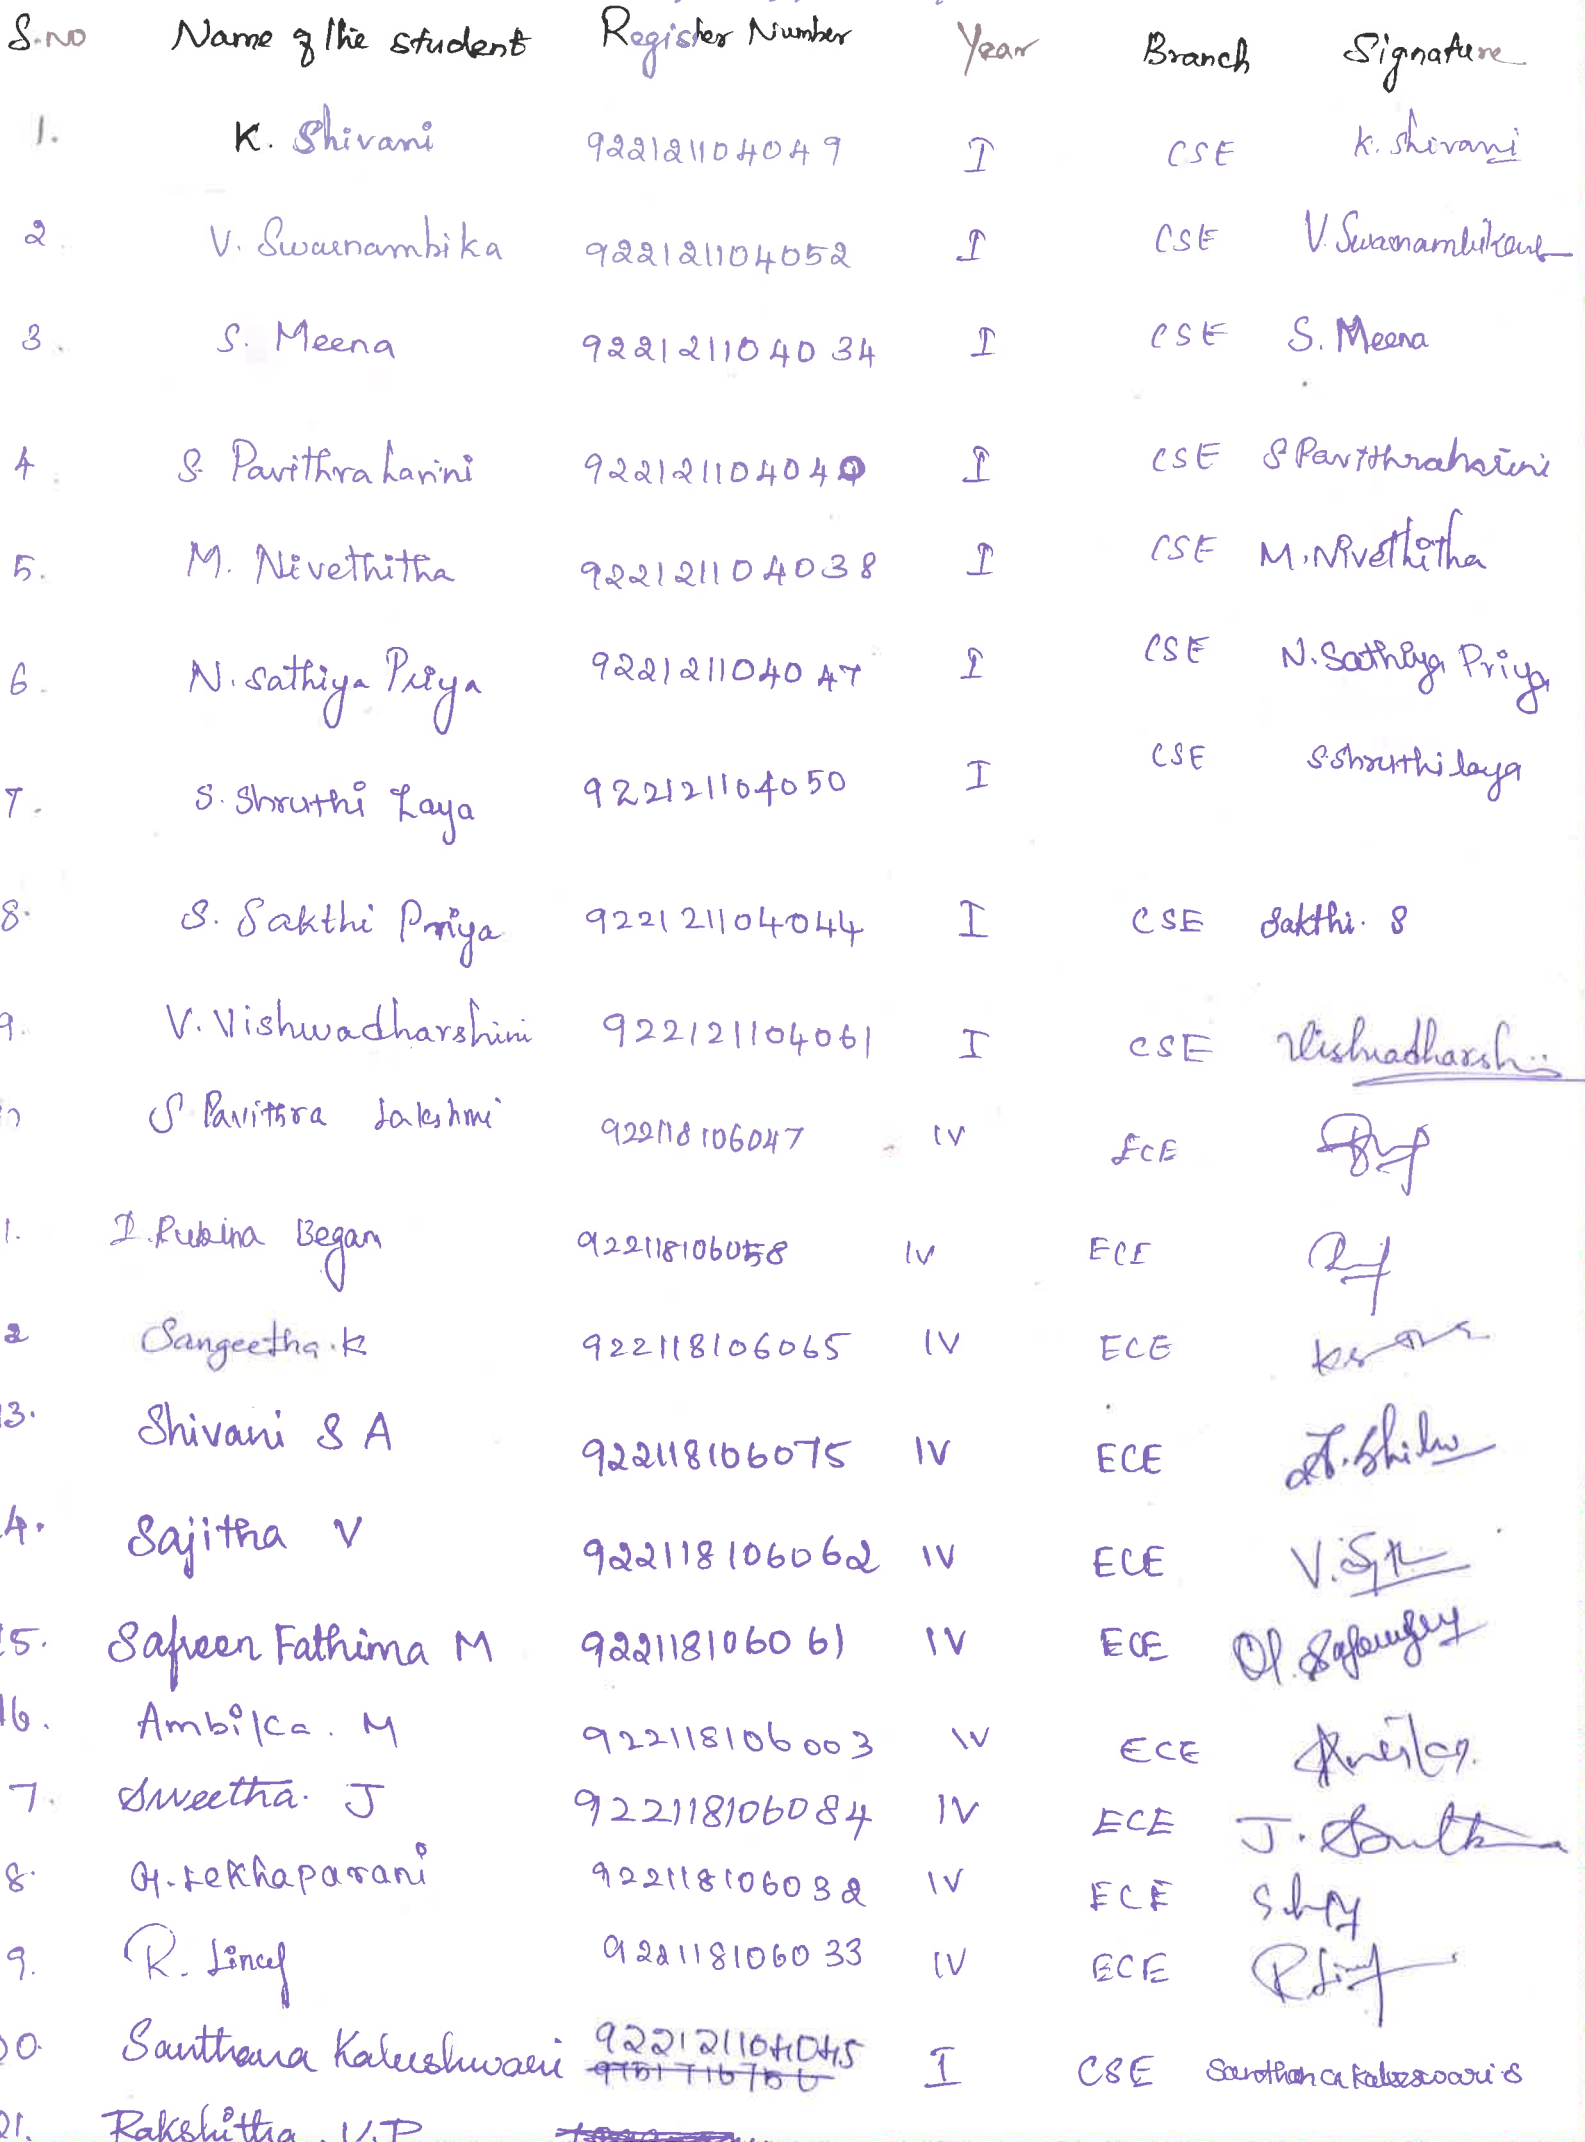 S.NO Name of the student Register Number Year Branch Signature
1. K. Shivani 922121104049 I CSE K. Shivani
2. V. Swarnambika 922121104052 I CSE V. Swarnambika
3. S. Meena 922121104034 I CSE S. Meena
4. S. Pavithra harini 922121104040 I CSE S Pavithraharini
5. M. Nivethitha 922121104038 I CSE M. Nivethitha
6. N. Sathiya Priya 922121104047 I CSE N. Sathiya Priya
7. S. Shruthi Laya 922121104050 I CSE S. Shruthi laya
8. S. Sakthi Priya 922121104044 I CSE Sakthi. S
9. V. Vishwadharshini 922121104061 I CSE Vishwadharshini
S Pavithra Lakshmi 922118106047 IV ECE
1. I. Rubina Begam 922118106058 IV ECE
2 Sangeetha. K 922118106065 IV ECE
13. Shivani S A 922118106075 IV ECE
4. Sajitha V 922118106062 IV ECE
15. Safreen Fathima M 922118106061 IV ECE
16. Ambika. M 922118106003 IV ECE
7. Sweetha. J 922118106084 IV ECE
8. G. Lekhaparani 922118106032 IV ECE
9. R. Lincy 922118106033 IV ECE R Lincy
20. Santhana Kaleeshwari 922121104045 I CSE Santhana Kaleeswari S
21. Rakshitha. V.P